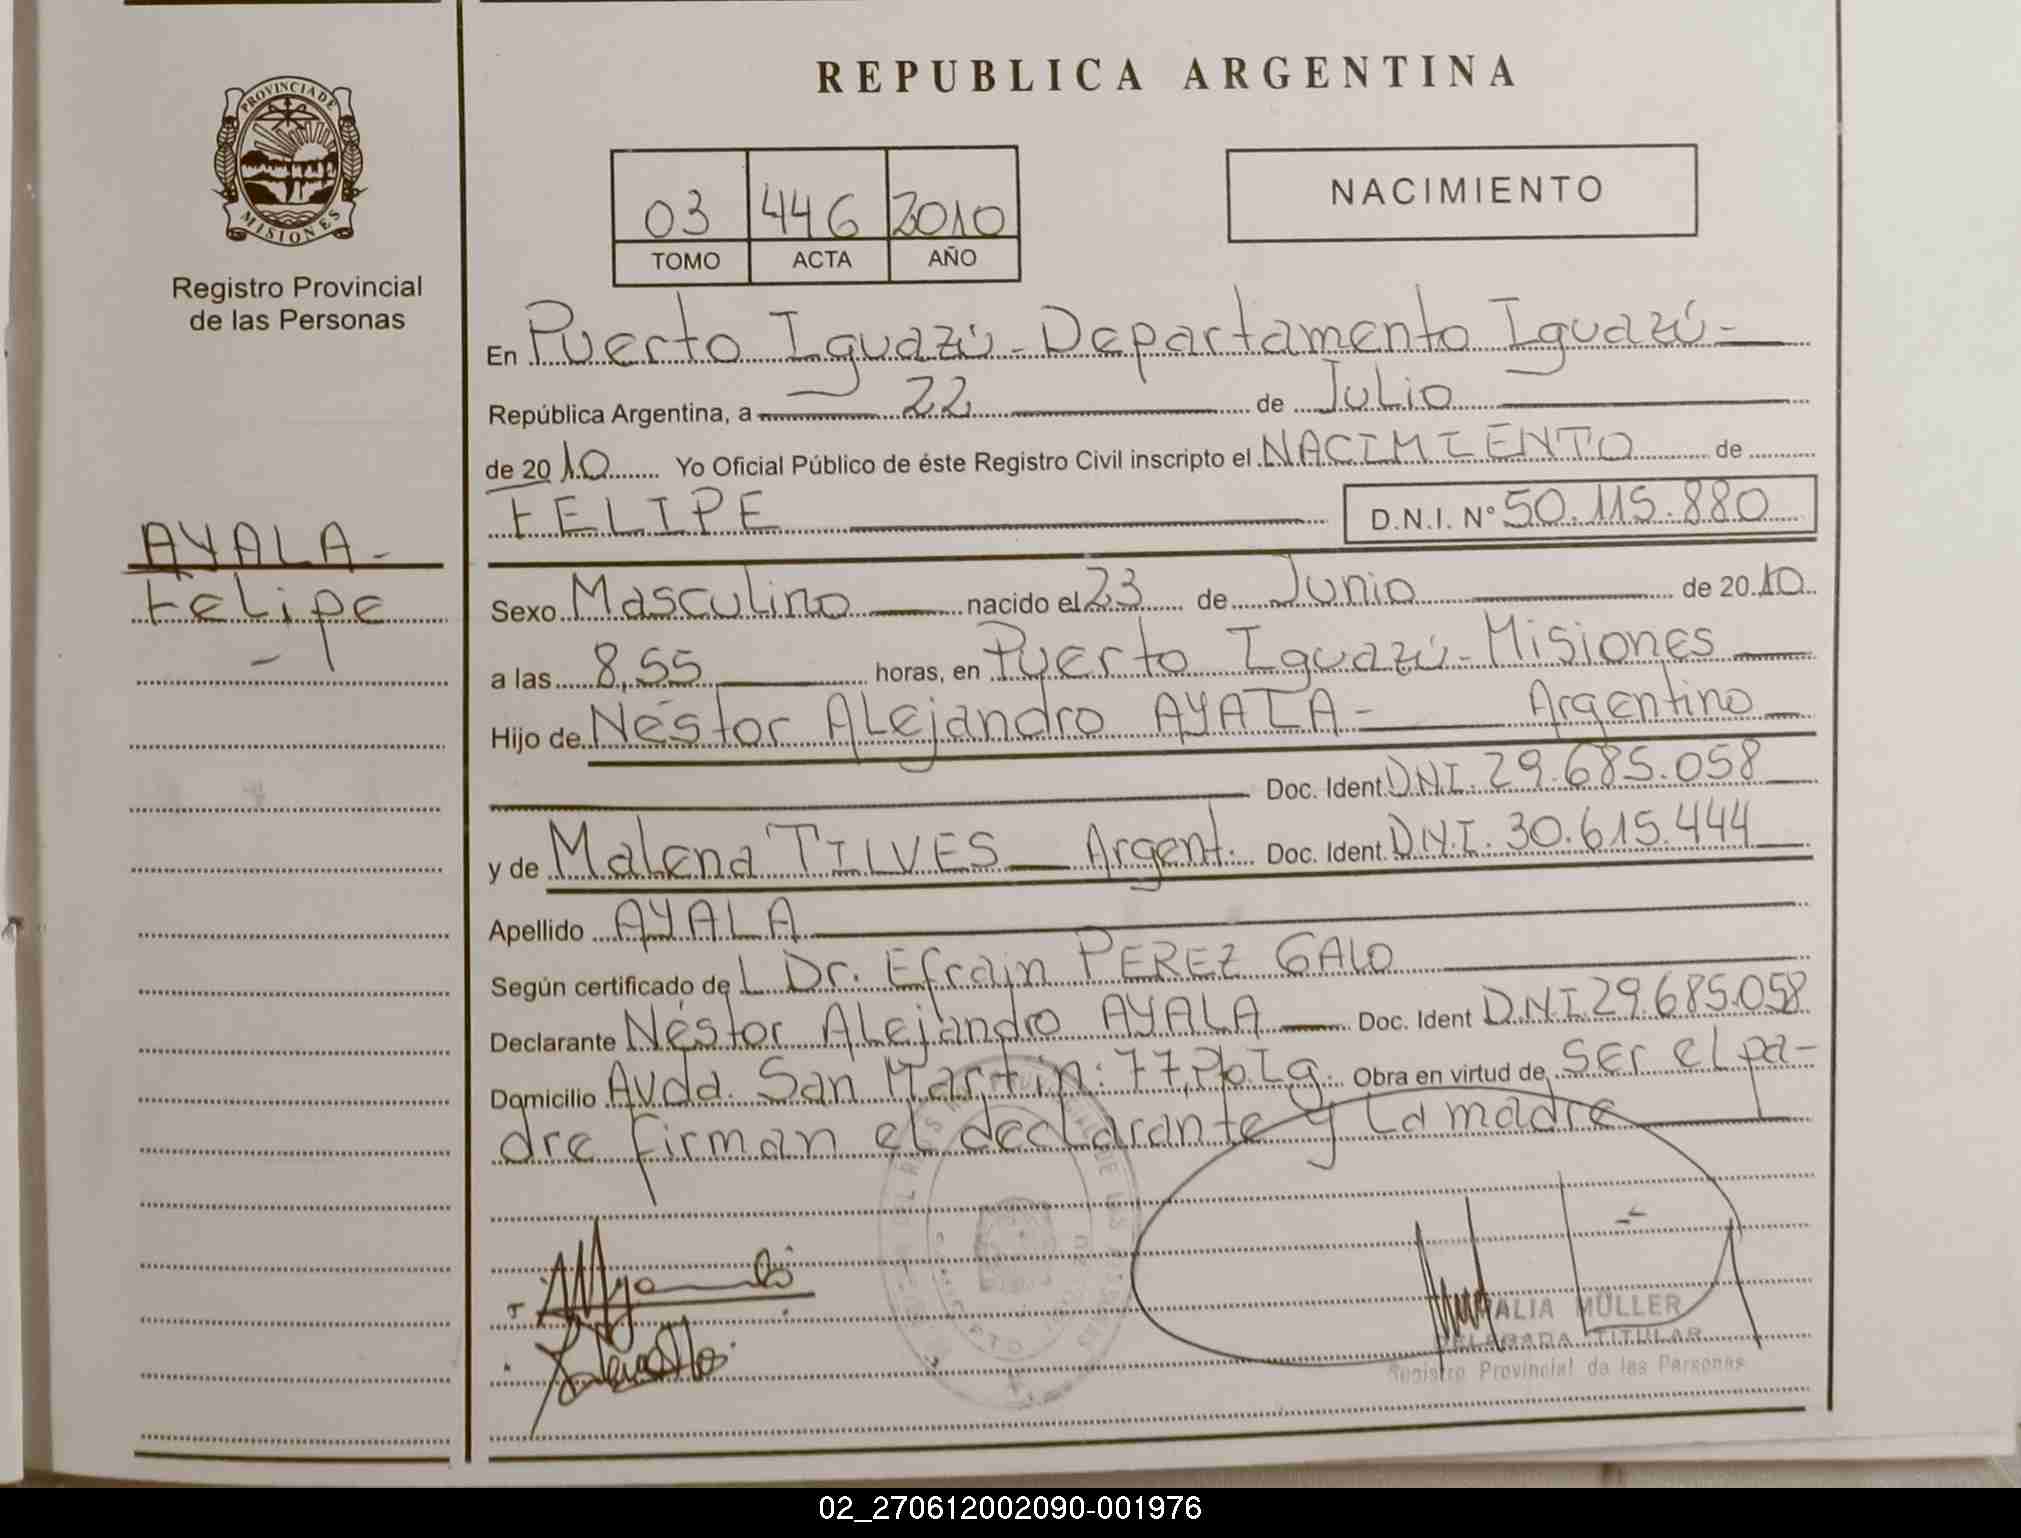 REPUBLICA ARGENTINA
PROVINCIA DE
MISIONES
Registro Provincial
de las Personas
03 446 2010
TOMO ACTA AÑO
NACIMIENTO
En Puerto Iguazú - Departamento Iguazú -
República Argentina, a 22 de Julio
de 2010 Yo Oficial Público de éste Registro Civil inscripto el NACIMIENTO de
FELIPE D.N.I. Nº 50.115.880
AYALA -
Felipe
-
Sexo Masculino nacido el 23 de Junio de 2010
a las 8,55 horas, en Puerto Iguazú - Misiones
Hijo de Néstor Alejandro AYALA - Argentino
Doc. Ident. DNI. 29.685.058
y de Malena TILVES Argent. Doc. Ident. D.N.I. 30.615.444
Apellido AYALA
Según certificado de L Dr. Efrain PEREZ GALO
Declarante Néstor Alejandro AYALA Doc. Ident D.N.I. 29.685.058
Domicilio Avda. San Martin: 77, Pto. Ig. Obra en virtud de ser el pa-
dre firman el declarante y la madre
MÜLLER
DELEGADA TITULAR
Registro Provincial de las Personas
02_270612002090-001976